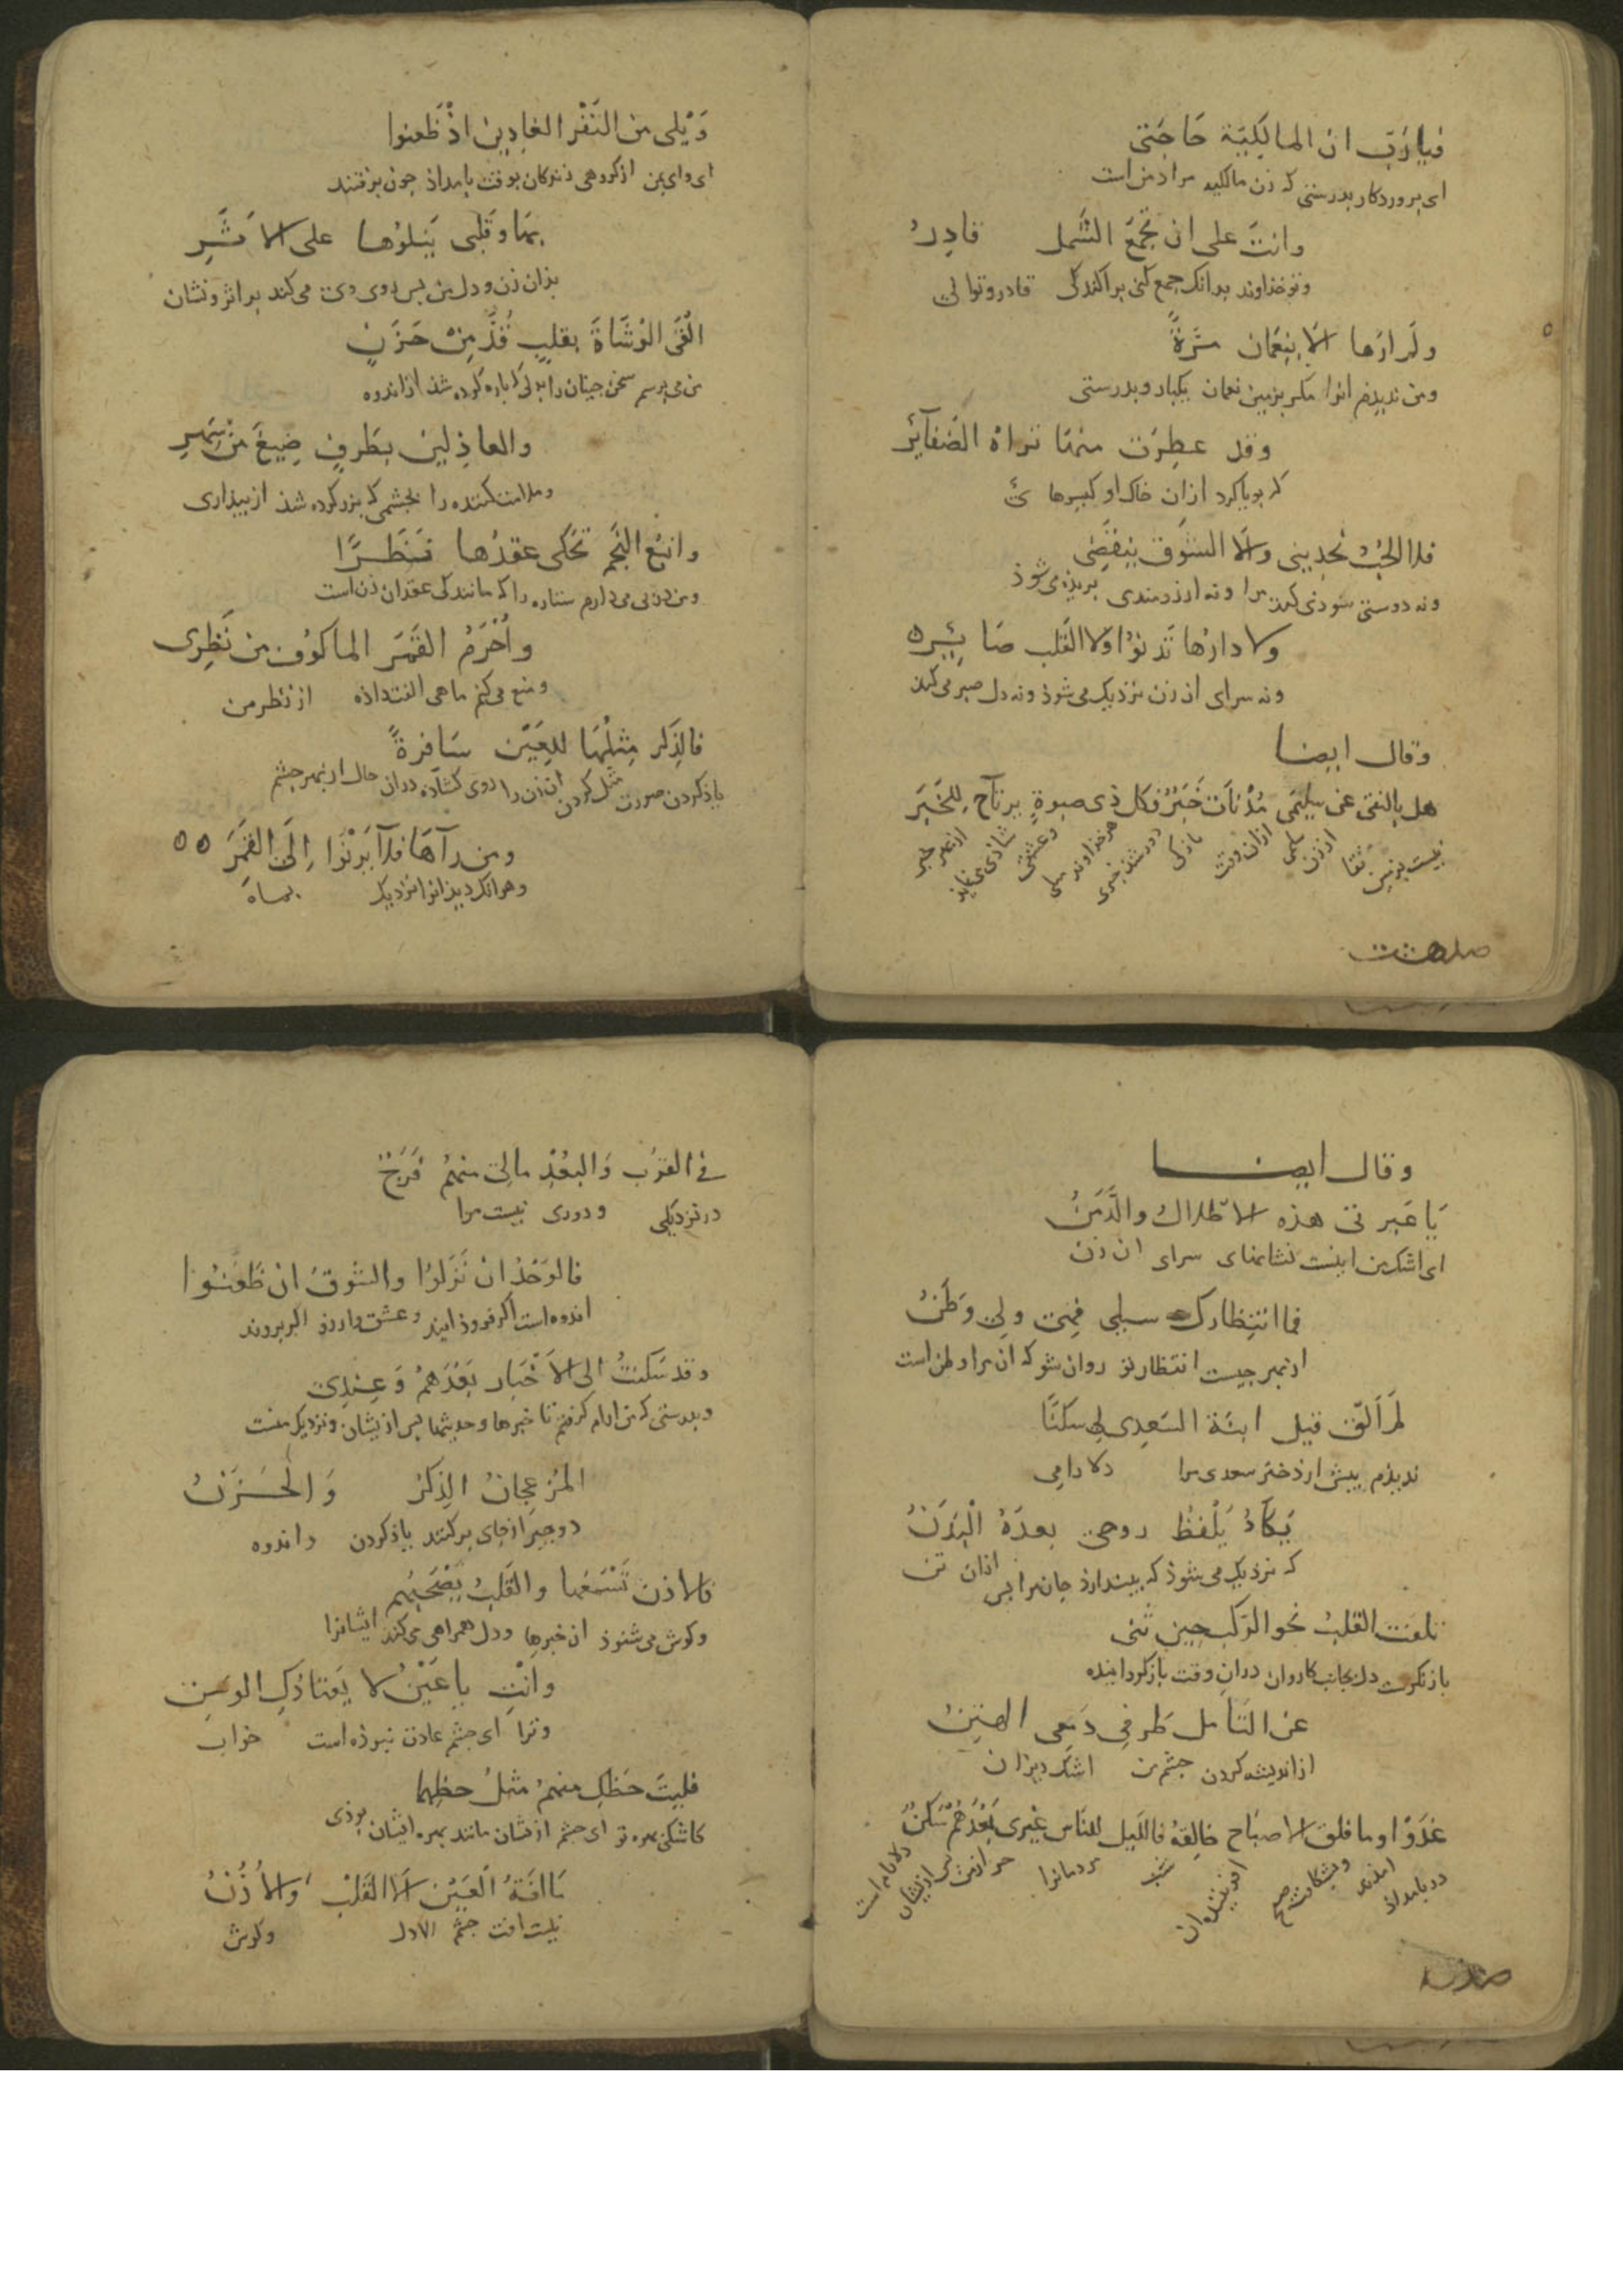 فيارب ان المالكية حاجتى
اى پروردكار بدرستى كه زن مالكيه مراد من است
وانت على ان تجمع الشمل قادر
وتو خذاوند برانك جمع كنى براكندكى قادر وتوانى
ولم ارها الا بنعمان مرة
ومن نديدم انرا مكر بزمين نعمان يكبار وبدرستى
وقد عطرت منها تراه الضفآئر
كه بويا كرد ازان خاك او كيسوها
فلا الحب يجدينى ولا الشوق ينقضى
ونه دوستى سوذ مى كند مرا ونه ارزومندى بريذه مى شوذ
ولا دارها تدنوا ولا القلب صابره
ونه سراى ان زن نزديك مى شوذ ونه دل صبر مى كند
وقال ايضا
هل بالنقى عن سليمى مذ نات خبر فكل ذى صبوة يرتاح للخبر
نيست بزمين نقا از زن سلمى ازان وقت باز كى دور شذ خبرى هر خذاوند ميلى وعشقى شاذى مى نمايذ از بهر خبر
ويلى من النفر الغادين اذ ظعنوا
اى واى من از كروهى روندكان بوقت بامداذ چون برفتند
بها وقلبى يتلوها على الاثر
بذان زن ودل من پس روى وى مى كند بر اثر ونشان
القى الوشاة بقلب قد من حزن
من مى برسم سخن چينان را بدلى كه باره كرده شذ از اندوه
والعاذلين بطرف ضيغ من سهر
وملامت كننده را بچشمى كه بزر كرده شذ از بيذارى
واتبع النجم تحكى عقدها نظرا
ومن در پى مى دارم ستاره را كه مانندكى عقد ان زن است
واحرم القمر المالوف من نظرى
ومنع مى كنم ماهى الفت داذه از نظر من
فالذكر مثلها للعين سافرة
ياذ كردن صورت مثل كردن ان زن را روى كشاده دران حال از بهر چشم
ومن رآها فلا يرنوا الى القمر
وهر انك ديذ انرا نزديك بماه
وقال ايضا
يا عبرتى هذه الاطلال والدمن
اى اشك من اينست نشانهاى سراى ان زن
فما انتظارك سيلى فهى ولى وطن
از بهر چيست انتظار تو روان شو كه ان مرا وطن است
لم الق قبل ابنة السعدى لى سكنا
نديذم پيش از دختر سعدى مرا دلارامى
يكاد يلفظ روحى بعده البدن
كه نزديك مى شوذ كه بيندازذ جان مرا پس ازان تن
تلفت القلب نحو الركب حين ثنى
باز نكرست دل بجانب كاروان دران وقت باز كردانيده
عن التامل طرفى دمعى الهتن
از انديشه كردن چشم من اشك ريزان
غدوا وما فلق الاصباح خالقه فالليل للناس غيرى بعدهم سكن
در بامداذ امذند وبشكافت صبح افريننده ان شب مردمانرا جز از من پس از يشان دلارام است
فى القرب والبعد مالى منهم فرج
در نزديكى ودورى نيست مرا
فالوجد ان نزلوا والشوق ان ظعنوا
اندوه است اكر فروذ ايند وعشق وارزو اكر بروند
وقد سكنت الى الاخبار بعدهم وعندى
وبدرستى كه من ارام كرفتم تا خبرها وحديثها پس از يشان ونزديك منست
المزعجان الذكر والحزن
دو چيز از جاى بركنند ياذ كردن واندوه
فالاذن تسمعها والقلب يصحبهم
وكوش مى شنوذ ان خبرها ودل همراهى مى كند ايشانرا
وانت يا عين لا يعتادك الوسن
وترا اى چشم عادت نبوذه است خواب
فليت حظك منهم مثل حظهما
كاشكى بهره تو اى چشم از يشان مانند بهره ايشان بوذى
ما افة العين الا القلب والاذن
نيست افت چشم الا دل وكوش